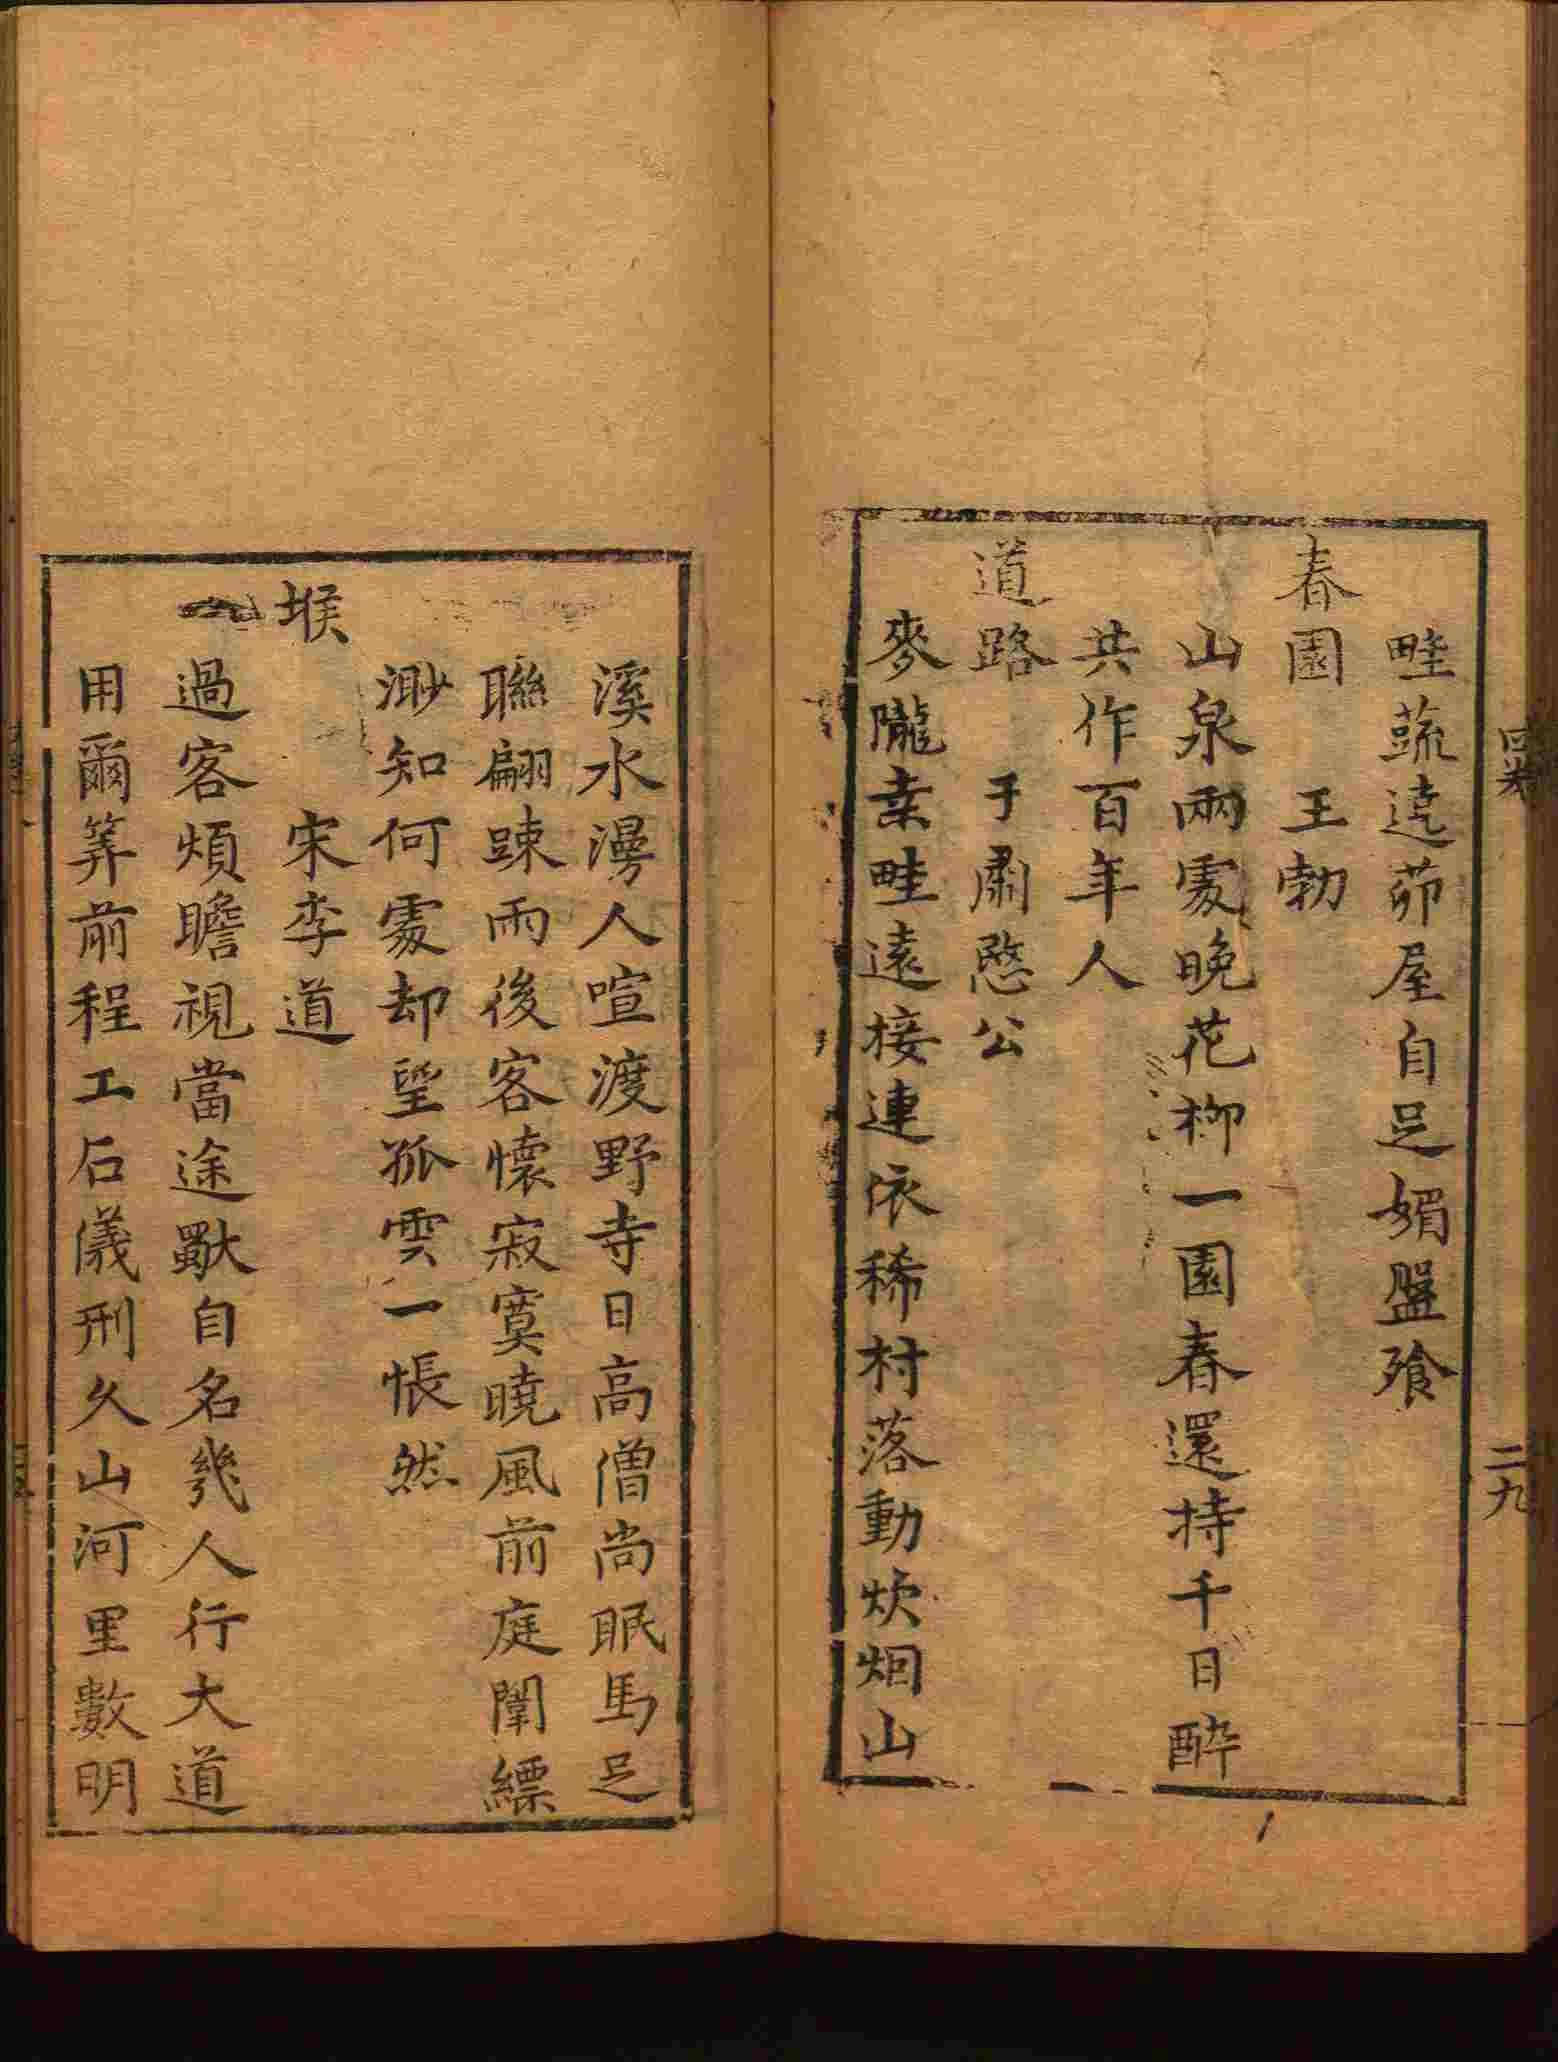 畦蔬遶茆屋自足媚盤飱
春園　王勃
山泉兩處晚花柳一園春還持千日醉
共作百年人
道路　于肅愍公
麥隴桒畦遠接連依稀村落動炊烟山
溪水漫人喧渡野寺日高僧尚眠馬足
聯翩踈雨後客懷寂寞曉風前庭闈縹
渺知何處却望孤雲一悵然
堠　宋李道
過客煩瞻視當途獸自名幾人行大道
用爾筭前程工石儀刑久山河里數明
二九